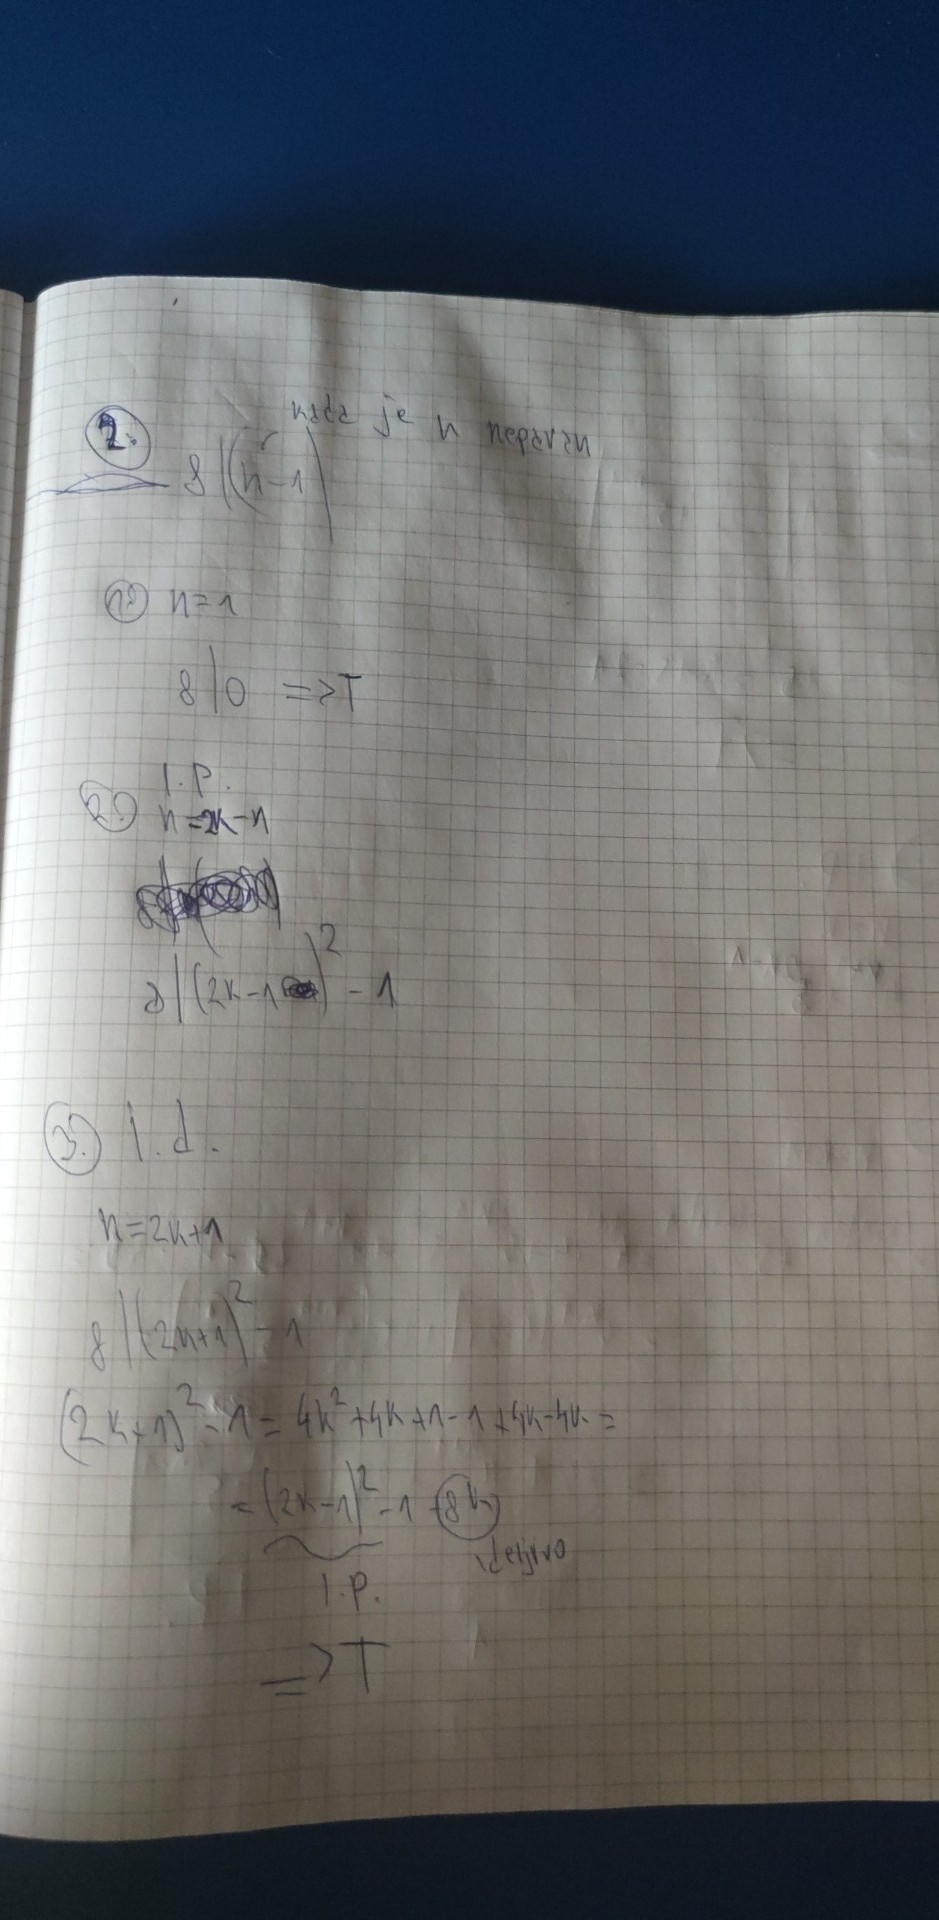 kada je n neparan
2. 8|(n²-1)
1.) n=1
8|0 => T
I.P.
2.) n=2k-1
8|(2k-1)² - 1
3.) I.d.
n=2k+1
8|(2k+1)² - 1
(2k+1)² - 1 = 4k²+4k+1-1+4k-4k =
= (2k-1)² - 1 + 8k
deljivo
I.P.
=> T